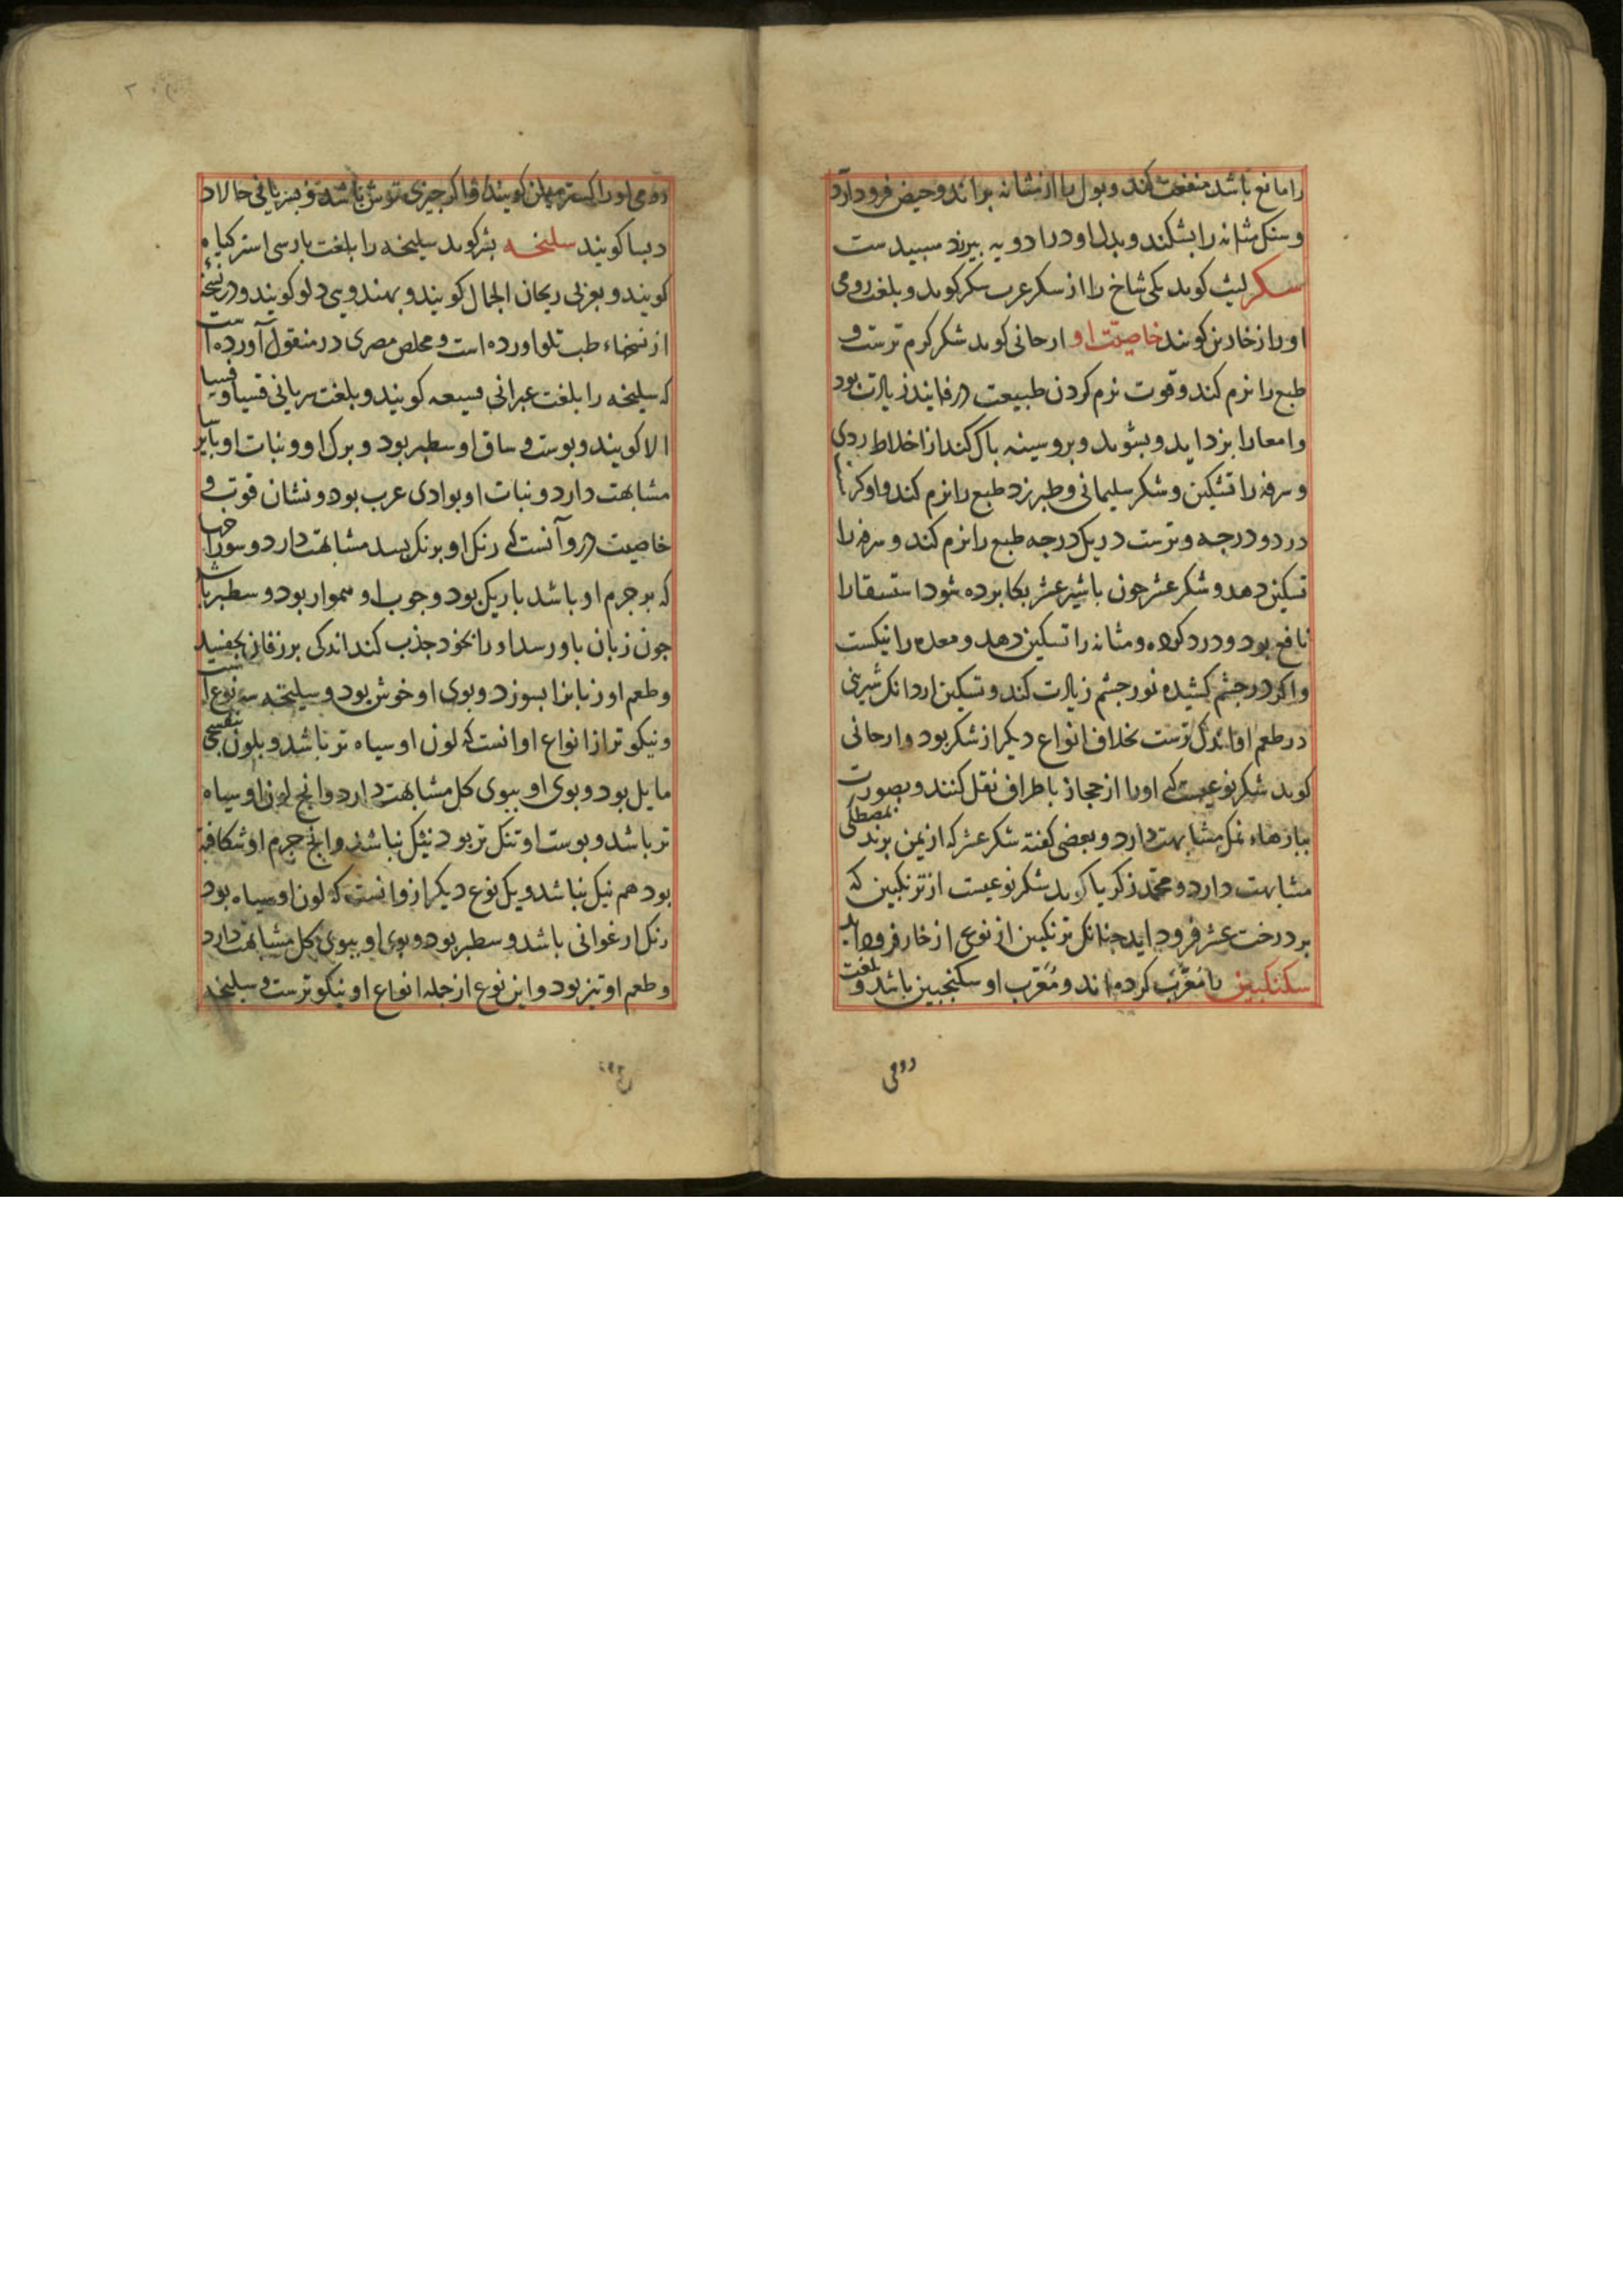 را مانع باشد منفعت کند و بول را از مثانه براند و حیض فرود آرد
و سنک مثانه را بشکند و بدل او در ادویه بیرند سبیدست
سکر لیث کوید یکی شاخ را از سکر عرب سکر کوید و بلغت رومی
او را زخارین کویند خاصیت او ارجانی کوید شکر کرم ترست و
طبع را نرم کند و قوت نرم کردن طبیعت در فانید زیادت بود
و امعا را بزداید و بشوید و بر و سینه باک کند از اخلاط ردی
و سرفه را تسکین و شکر سلیمانی و طبرزد طبع را نرم کند و او کرم
در دو درجه و ترست در یک درجه طبع را نرم کند و سرفه را
تسکین دهد و شکر عشر جون باشیر عشر بکار برده شود استسقا را
نافع بود و درد کرده و مثانه را تسکین دهد و معده را نیکست
و اکر در جشم کشیده نور جشم زیادت کند و تسکین ارد انک شیرینی
در طعم او اندک ترست بخلاف انواع دیکر از شکر بود و ارجانی
کوید شکر نوعیست که او را از حجاز باطراف نقل کنند و بصورت
ببارهاء نمک مشابهت دارد و بعضی کفته شکر عشر که از یمن برند بمصطکی
مشابهت دارد و محمد زکریا کوید شکر نوعیست از ترنکبین که
بر درخت عشر فرود اید جنانک ترنکبین از نوعی از خار فرود اید
سکنکبین را معرب کرده اند و معرب او سکنجبین باشد و بلغت
رومی
رومی او را کویند و اکر جیزی ترش باشد و بسریانی حالاد
دبسا کویند سلیخه بشر کوید سلیخه را بلغت بارسی استر کیاه
کویند و بعربی ریحان الجمال کویند و بهندویی دلو کویند و در نسخه
از نسخهاء طب تلو اورده است و مخلص مصری در منقول آورده است
که سلیخه را بلغت عبرانی قسیعه کویند و بلغت سریانی قسیا و قسیا
الا کویند و بوست و ساق او سطبر بود و برک او و نبات او بایرسا
مشابهت دارد و نبات او بوادی عرب بود و نشان قوت و
خاصیت درو آنست که رنک او برنک بسد مشابهت دارد و سوراخها
که بر جرم او باشد باریک بود و جوب او هموار بود و سطبر باشد
جون زبان باو رسد او را بخود جذب کند اندکی بر زفان بجفسد
و طعم او زبان را بسوزد و بوی او خوش بود و سلیخه سه نوع است
و نیکو تر از انواع او انست که لون او سیاه تر باشد و بلون بنفسجی
مایل بود و بوی او ببوی کل مشابهت دارد و انج لون او سیاه
تر باشد و بوست او تنک تر بود نیک نباشد و انج جرم او شکافته
بود هم نیک نباشد و یک نوع دیکر ازو انست که لون او سیاه بود
رنک ارغوانی باشد و سطبر بود و بوی او ببوی کل مشابهت دارد
و طعم او تیز بود و این نوع از جمله انواع او نیکو ترست و سلیخه